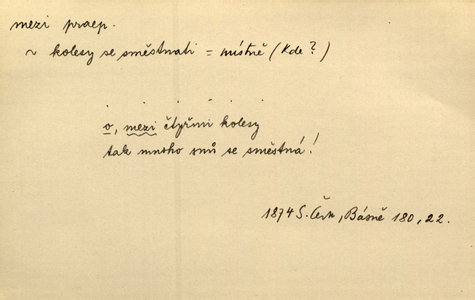 mezi praep.
~ kolesy se směstnati = místně (kde?)
o, mezi čtyřmi kolesy
tak mnoho snů se směstná!
1874 S. Čech, Básně 180, 22.